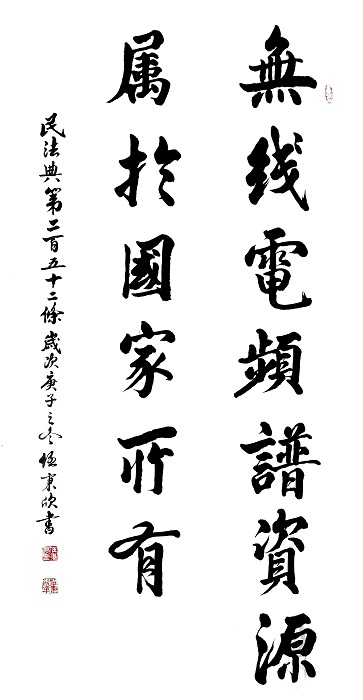 無线電頻譜資源
属於國家所有
民法典第二百五十二條歲次庚子之冬伍秉欣書